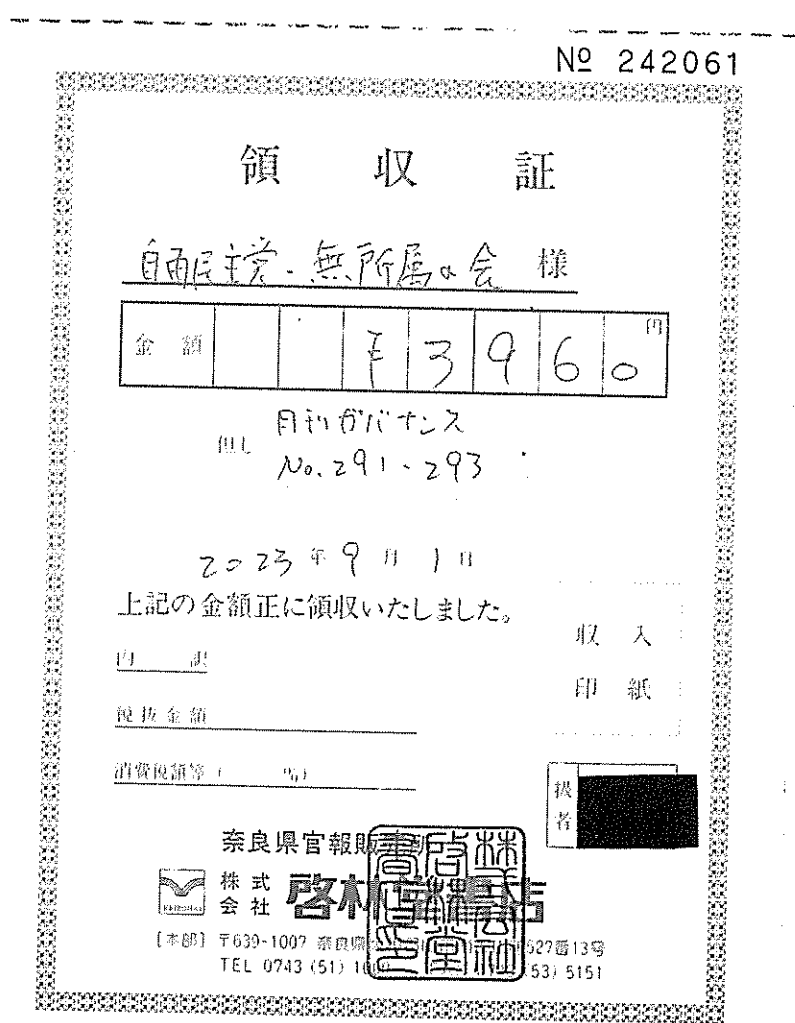 No 242061
領 収 証
自由民主党・無所属の会 様
金 額 ¥3960 円
但し 月刊ガバナンス
No.291-293
2023年9月1日
上記の金額正に領収いたしました。
収 入
印 紙
内 訳
税抜金額
消費税額等( %)
扱者
奈良県官報販売所
株式会社 啓林堂書店
[本部] 〒639-1007 奈良県 527番13号
TEL 0743 (51) 1000 53) 5151